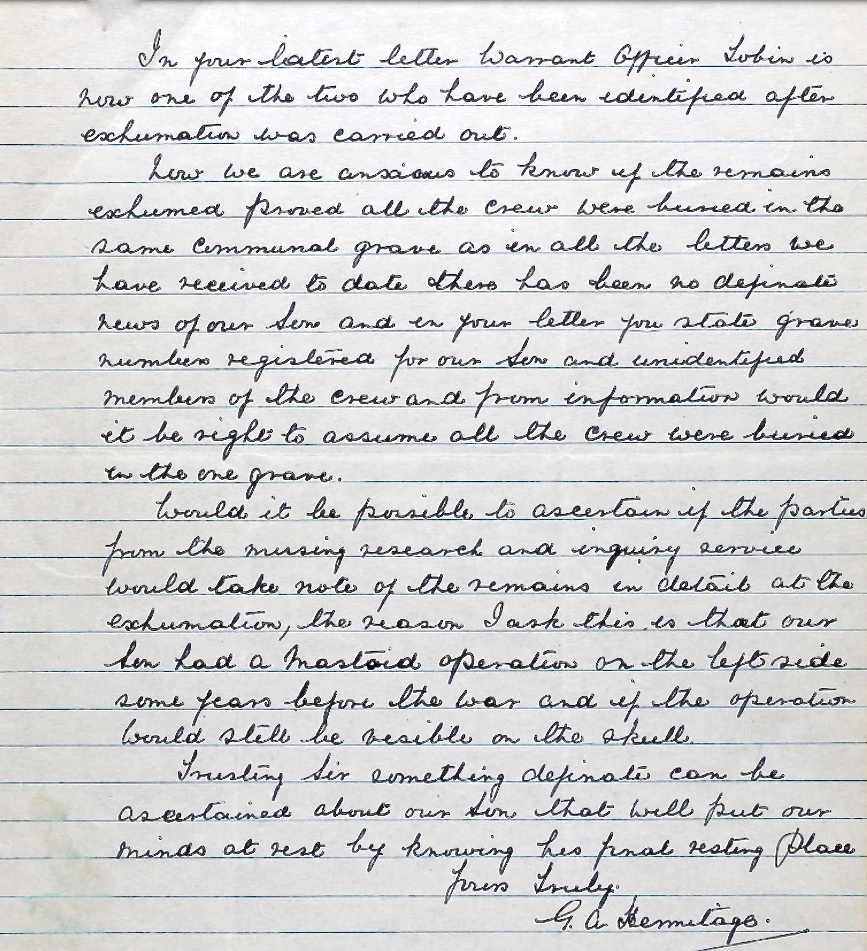 In your latest letter Warrant Officer Tobin is
now one of the two who have been identified after
exhumation was carried out.
Now we are anxious to know if the remains
exhumed proved all the crew were buried in the
same communal grave as in all the letters we
have received to date there has been no definate
news of our Son and in your letter you state grave
numbers registered for our Son and unidentified
members of the crew and from information would
it be right to assume all the crew were buried
in the one grave.
Would it be possible to ascertain if the parties
from the missing research and inquiry service
would take note of the remains in detail at the
exhumation, the reason I ask this is that our
Son had a Mastoid operation on the left side
some years before the war and if the operation
would still be visible on the skull.
Trusting Sir something definate can be
ascertained about our Son that will put our
minds at rest by knowing his final resting Place
Yours Truly.
G. A. Hermitage.